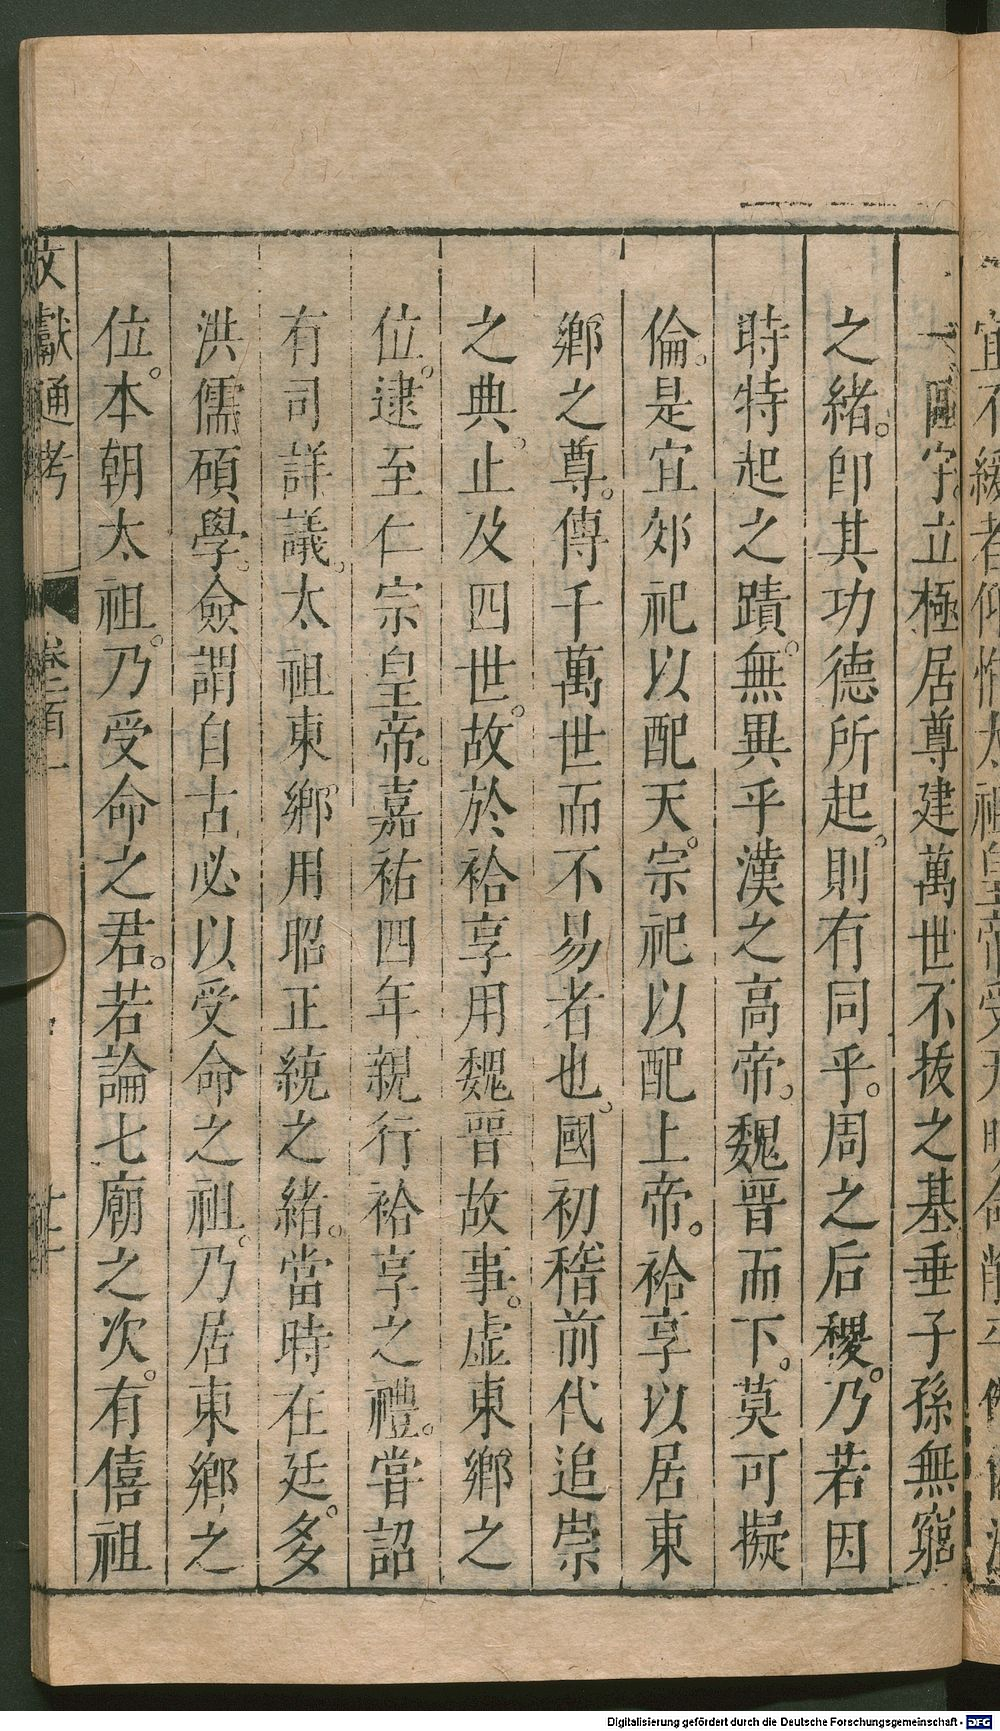 一區宇。立極居尊建萬世不拔之基垂子孫無窮
之緒。卽其功德所起。則有同乎。周之后稷。乃若因
時特起之蹟。無異乎漢之高帝。魏晉而下。莫可擬
倫。是宜郊祀以配天。宗祀以配上帝。祫享以居東
鄉之尊。傳千萬世而不易者也。國初稽前代追崇
之典。止及四世。故於祫享用魏晉故事。虛東鄉之
位。逮至仁宗皇帝。嘉祐四年親行祫享之禮。嘗詔
有司詳議。太祖東鄉。用昭正統之緒。當時在廷。多
洪儒碩學。僉謂自古必以受命之祖。乃居東鄉之
位。本朝太祖。乃受命之君。若論七廟之次。有僖祖
文獻通考 卷一百一
Digitalisierung gefördert durch die Deutsche Forschungsgemeinschaft - DFG